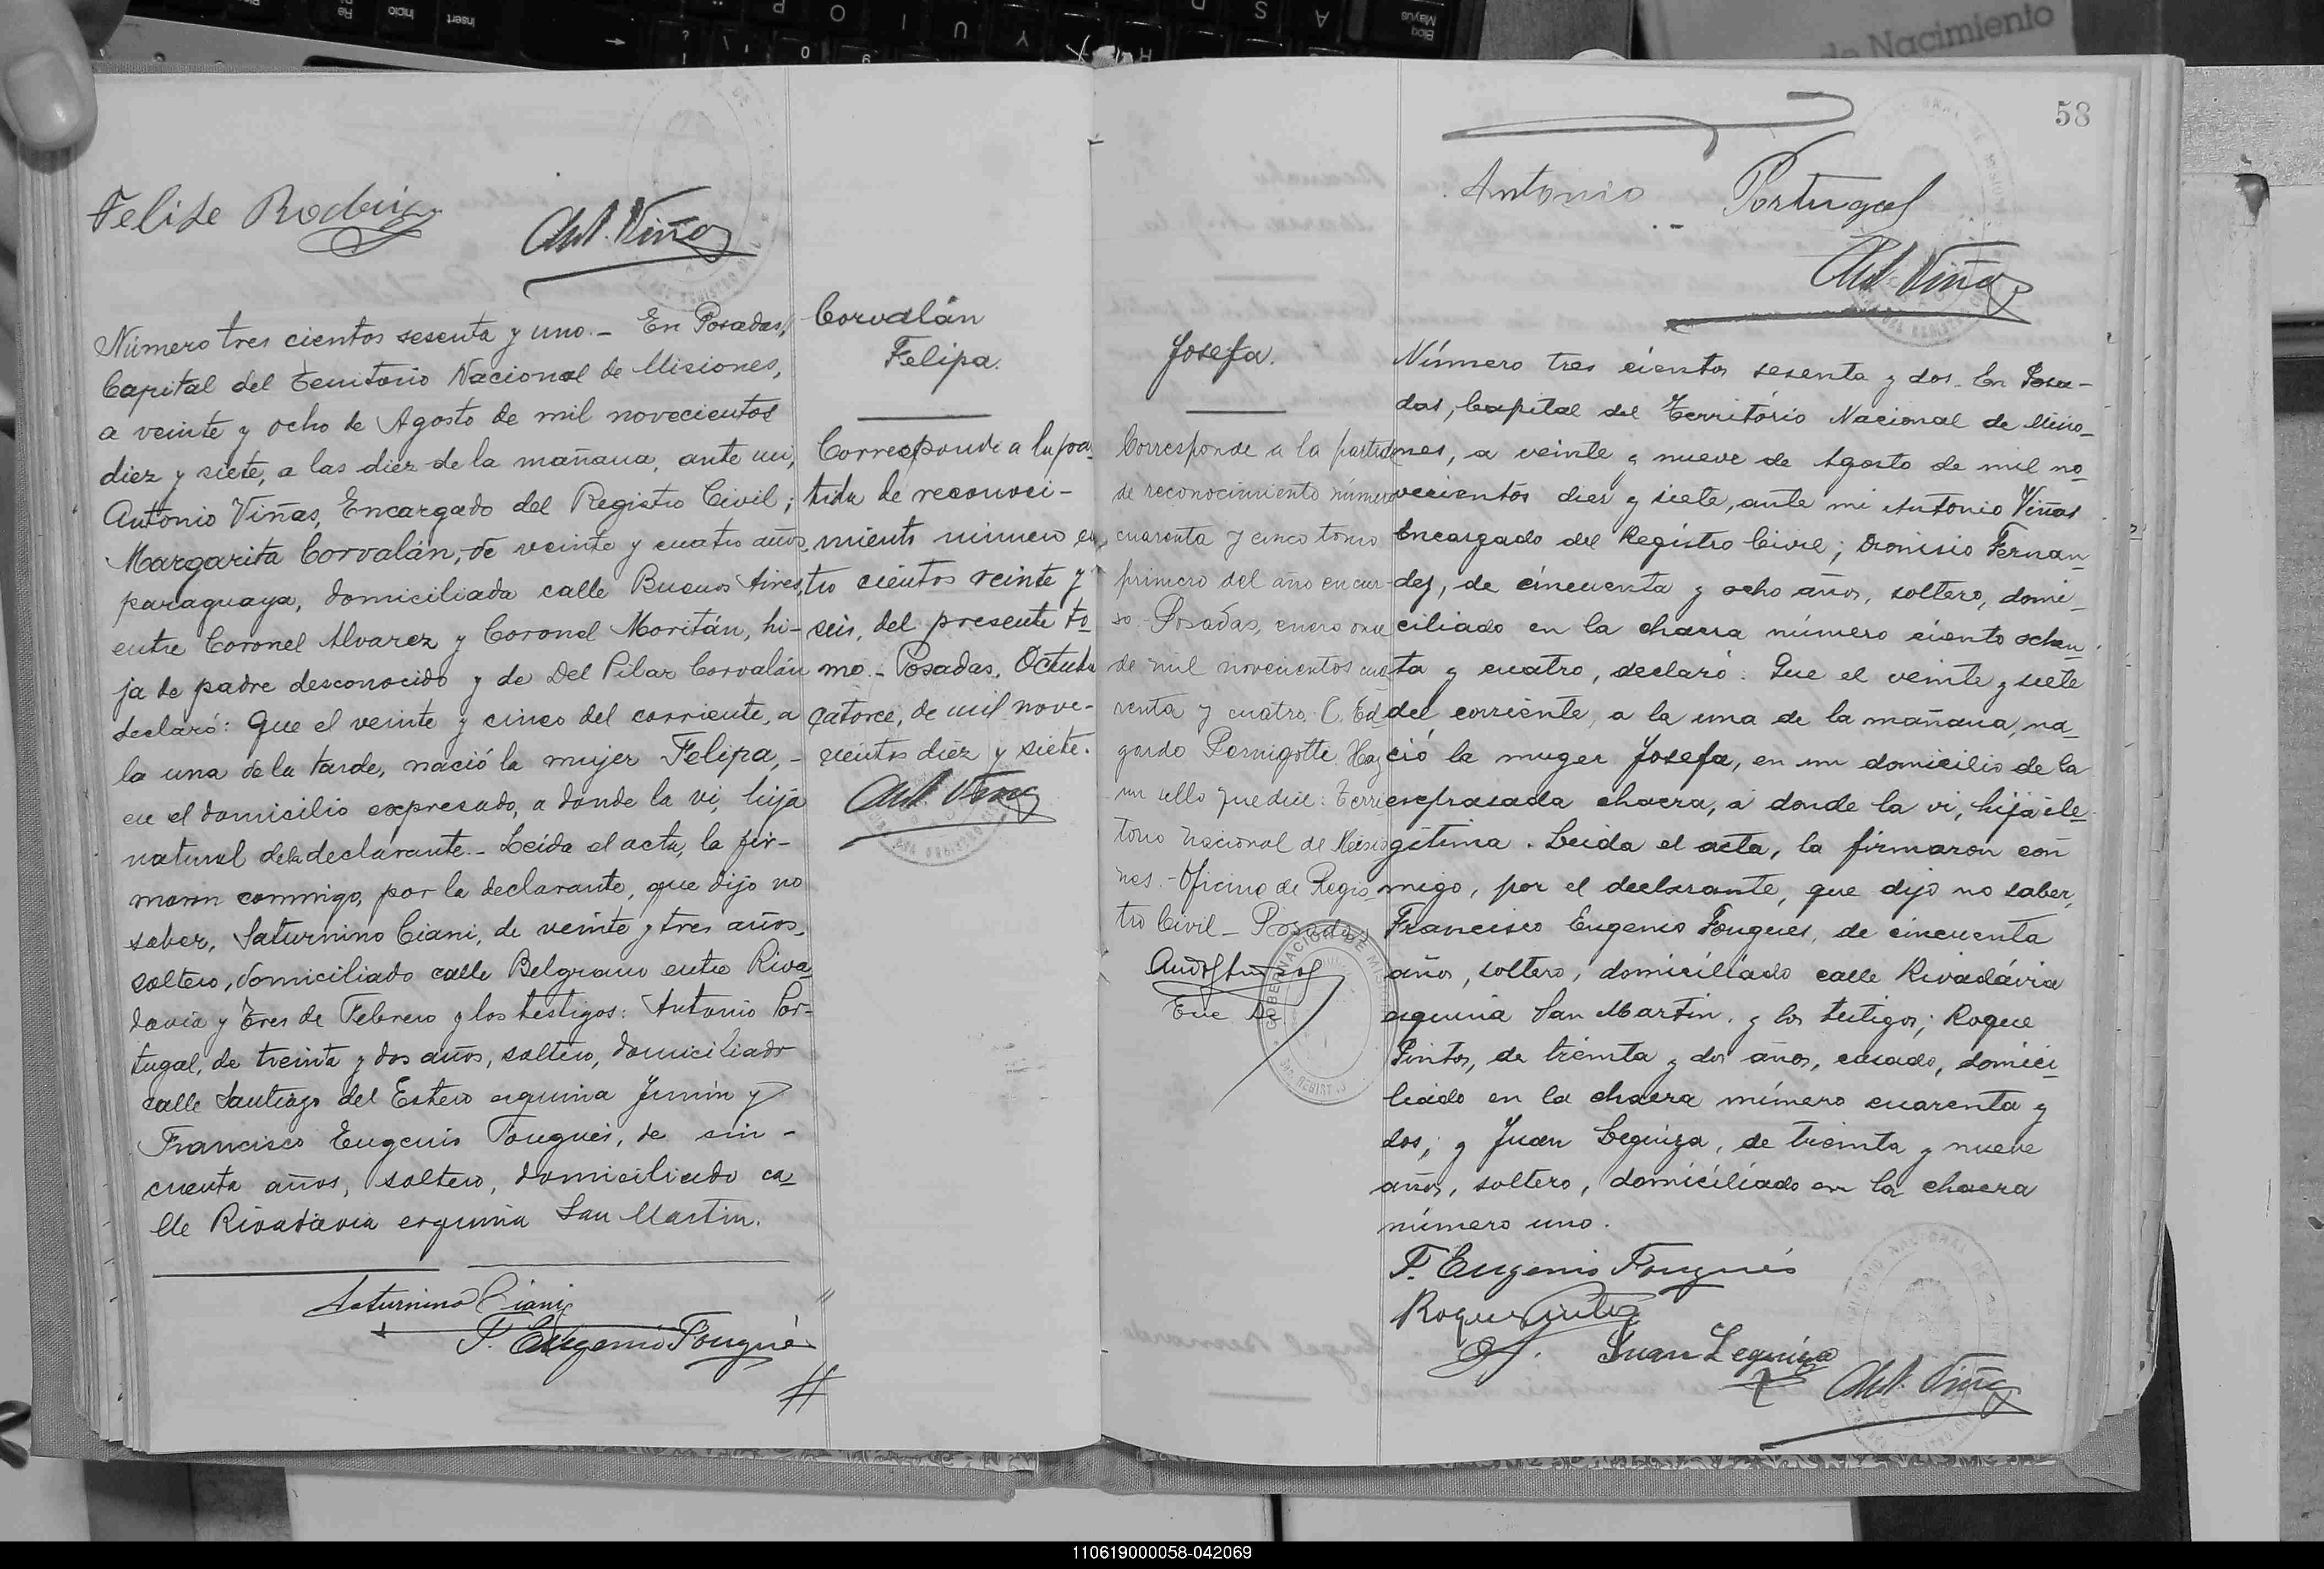 Felise Rodrig
Ant. Viñas
Número tres cientos sesenta y uno.- En Posadas,
Capital del Territorio Nacional de Misiones,
a veinte y ocho de Agosto de mil novecientos
diez y siete, a las diez de la mañana, ante mi,
Antonio Viñas, Encargado del Registro Civil;
Margarita Corvalán, de veinte y cuatro años,
paraguaya, domiciliada calle Buenos Aires,
entre Coronel Alvarez y Coronel Moritán, hi-
ja de padre desconocido y de Del Pilar Corvalán
declaró: Que el veinte y cinco del corriente, a
la una de la tarde, nació la mujer Felipa, -
en el domicilio expresado, a donde la vi, hija
natural de la declarante.- Leída el acta, la fir-
maron conmigo, por la declarante, que dijo no
saber, Saturnino Ciani, de veinte y tres años,
soltero, domiciliado calle Belgrano entre Riva
davia y Tres de Febrero y los testigos: Antonio Por-
tugal, de treinta y dos años, soltero, domiciliado
calle Santiago del Estero esquina Junín y
Francisco Eugenio Fougués, de sin-
cuenta años, soltero, domiciliado ca-
lle Rivadavia esquina San Martin.
Saturnino Ciani
F. Eugenio Fougués
Corvalán
Felipa.
Corresponde a la par-
tida de reconoci-
miento número cua
tro cientos veinte y
seis, del presente to-
mo.- Posadas, Octubre
catorce, de mil nove-
cientos diez y siete.
Ant. Viñas
58
Antonio Portugal
Ant. Viñas
Josefa.
Corresponde a la partida
de reconocimiento número
cuarenta y cinco tomo
primero del año en cur-
so.- Posadas, enero once
de mil novecientos cua-
renta y cuatro. C. Ed-
gardo Pernigotte. Hay
un sello que dice: Terri-
torio Nacional de Misio-
nes.- Oficina de Regis-
tro Civil - Posadas
GOBERNACION DE MISIONES
Número tres cientos sesenta y dos. En Posa-
das, Capital del Território Nacional de Misio-
nes, a veinte y nueve de Agosto de mil no-
vecientos diez y siete, ante mi Antonio Viñas
Encargado del Registro Civil; Dionisio Fernan-
dez, de cincuenta y ocho años, soltero, domi-
ciliado en la chacra número ciento ochen-
ta y cuatro, declaró: Que el veinte y siete
del corriente, a la una de la mañana, na-
ció la muger Josefa, en su domicilio de la
expresada chacra, a donde la vi, hija ile-
gitima. Leida el acta, la firmaron con
migo, por el declarante, que dijo no saber,
Francisco Eugenio Fougués, de cincuenta
años, soltero, domiciliado calle Rivadávia
esquina San Martin, y los testigos; Roque
Pintos, de treinta y dos años, casado, domici-
liado en la chacra número cuarenta y
dos; y Juan Leguiza, de treinta y nueve
años, soltero, domiciliado en la chacra
número uno.
F. Eugenio Fougués
Roque Pintos
Juan Leguiza
Ant. Viñas
de Nacimiento
110619000058-042069